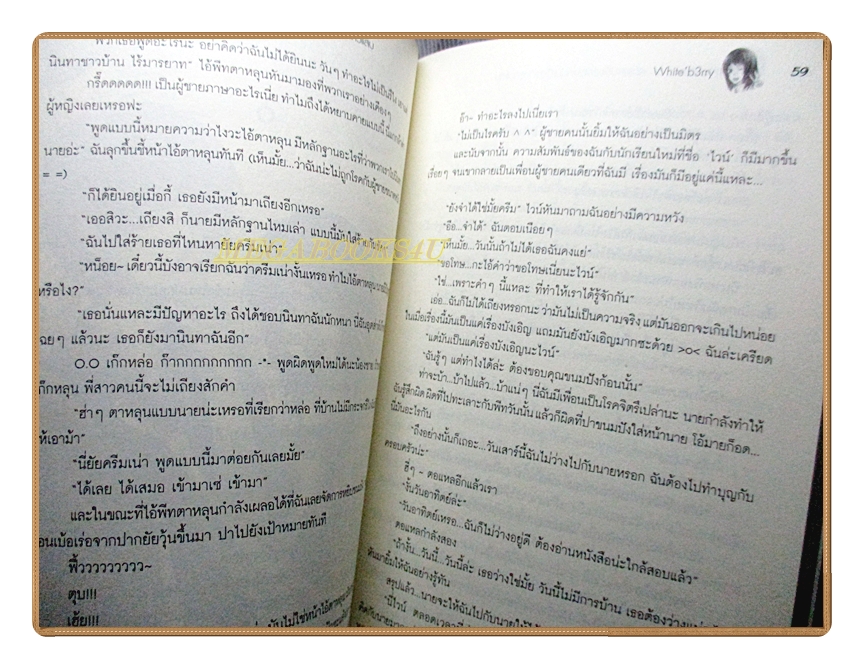 พวกเธอพูดอะไรน่ะ อย่าคิดว่าฉันไม่ได้ยินนะ วันๆ ทำอะไรไม่เป็นรึไง
นินทาชาวบ้าน ไร้มารยาท" ไอ้พีทตาหลุนหันมามองที่พวกเราอย่างเคืองๆ
กรี๊ดดดดด!!! เป็นผู้ชายภาษาอะไรเนี่ย ทำไมถึงได้หยาบคายแบบนี้
ผู้หญิงเลยเหรอฟะ
"พูดแบบนี้หมายความว่าไงวะไอ้ตาหลุน มีหลักฐานอะไรที่ว่าพวกเรา
นายอ่ะ" ฉันลุกขึ้นชี้หน้าไอ้ตาหลุนทันที (เห็นมั้ย...ว่าฉันน่ะไม่ถูกโรคกับผู้ชาย
= =)
"ก็ได้ยินอยู่เมื่อกี้ เธอยังมีหน้ามาเถียงอีกเหรอ"
"เออสิวะ...เถียงสิ ก็นายมีหลักฐานไหมเล่า แบบนี้มันใส่ร้าย
"ฉันไปใส่ร้ายเธอที่ไหนหายัยครีมเน่า"
"หน็อย~ เดี๋ยวนี้บังอาจเรียกฉันว่าครีมเน่างั้นเหรอ ทำไมไอ้ตาหลุน
หรือไง?"
"เธอนั่นแหละมีปัญหาอะไร ถึงได้ชอบนินทาฉันนักหนา นี่ฉันอุตส่าห์
ฉยๆ แล้วนะ เธอก็ยังมานินทาฉันอีก"
O.O เก๊กหล่อ ก๊ากกกกกกกกกก -*- พูดผิดพูดใหม่ได้นะน้องชาย
เก๊กหลุน พี่สาวคนนี้จะไม่เถียงสักคำ
"ฮ่าๆ ตาหลุนแบบนายน่ะเหรอที่เรียกว่าหล่อ ที่บ้านไม่มีกระจก
ห้เอาม้า"
"นี่ยัยครีมเน่า พูดแบบนี้มาต่อยกันเลยมั้ย"
"ได้เลย ได้เสมอ เข้ามาเซ่ เข้ามา"
และในขณะที่ไอ้พีทตาหลุนกำลังเผลอได้ที่ฉันเลยจัดการหยิบ
อนเบ้อเร่อจากปากยัยวุ้นขึ้นมา ปาไปยังเป้าหมายทันที
ฟิ้ววววววววว~
ตุบ!!!
เฮ้ย!!!
White'b3rry
59
อ๊า~ ทำอะไรลงไปเนี่ยเรา
"ไม่เป็นไรครับ ^ ^" ผู้ชายคนนั้นยิ้มให้ฉันอย่างเป็นมิตร
และนับจากนั้น ความสัมพันธ์ของฉันกับนักเรียนใหม่ที่ชื่อ 'ไวน์' ก็มีมากขึ้น
เรื่อยๆ จนเขากลายเป็นเพื่อนผู้ชายคนเดียวที่ฉันมี เรื่องมันก็มีอยู่แค่นี้แหละ...
"ยังจำได้ใช่มั้ยครีม" ไวน์หันมาถามฉันอย่างมีความหวัง
"อือ...จำได้" ฉันตอบเนือยๆ
"เห็นมั้ย...วันนั้นถ้าไม่ได้เธอฉันคงแย่"
"ขอโทษ...กะไอ้คำว่าขอโทษเนี่ยนะไวน์"
"ใช่...เพราะคำๆ นี้แหละ ที่ทำให้เราได้รู้จักกัน"
เอ่อ...ฉันก็ไม่ได้เถียงหรอกนะว่ามันไม่เป็นความจริง แต่มันออกจะเกินไปหน่อย
ในเมื่อเรื่องนี้มันเป็นแค่เรื่องบังเอิญ แถมมันยังบังเอิญมากซะด้วย >o< ฉันล่ะเครียด
"แต่มันเป็นแค่เรื่องบังเอิญนะไวน์"
"ฉันรู้ๆ แต่ทำไงได้ล่ะ ต้องขอบคุณขนมปังก้อนนั้น"
ท่าจะบ้า...บ้าไปแล้ว...บ้าแน่ๆ นี่ฉันมีเพื่อนเป็นโรคจิตรึเปล่านะ นายกำลังทำให้
ฉันรู้สึกผิด ผิดที่ไปทะเลาะกับพีทวันนั้น แล้วก็ผิดที่ปาขนมปังใส่หน้านาย โอ้มายก็อด...
นี่มันอะไรกัน
"ถึงอย่างนั้นก็เถอะ...วันเสาร์นี้ฉันไม่ว่างไปกับนายหรอก ฉันต้องไปทำบุญกับ
ครอบครัวน่ะ"
ฮี่ๆ ~ ตอแหลอีกแล้วเรา
"งั้นวันอาทิตย์ล่ะ"
"วันอาทิตย์เหรอ...ฉันก็ไม่ว่างอยู่ดี ต้องอ่านหนังสือน่ะใกล้สอบแล้ว"
ตอแหลกำลังสอง
"ถ้างั้น...วันนี้...วันนี้ล่ะ เธอว่างใช่มั้ย วันนี้ไม่มีการบ้าน เธอต้องว่าง
หันมายิ้มให้ฉันอย่างรู้ทัน
สรุปแล้ว...นายจะให้ฉันไปกับนายให้ได้
"นี่ไวน์ ตลอดเวลาที่
MEGA.BOOKS4U